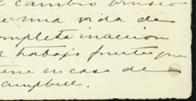 e cambio brusco
una vida de
mpleta inacción
trabajo fuerte que
iene en casa de
ampbell.